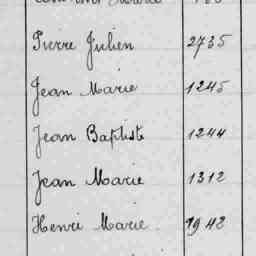 Pierre Julien 2735
Jean Marie 1245
Jean Baptiste 1244
Jean Marie 1312
Henri Marie 1942